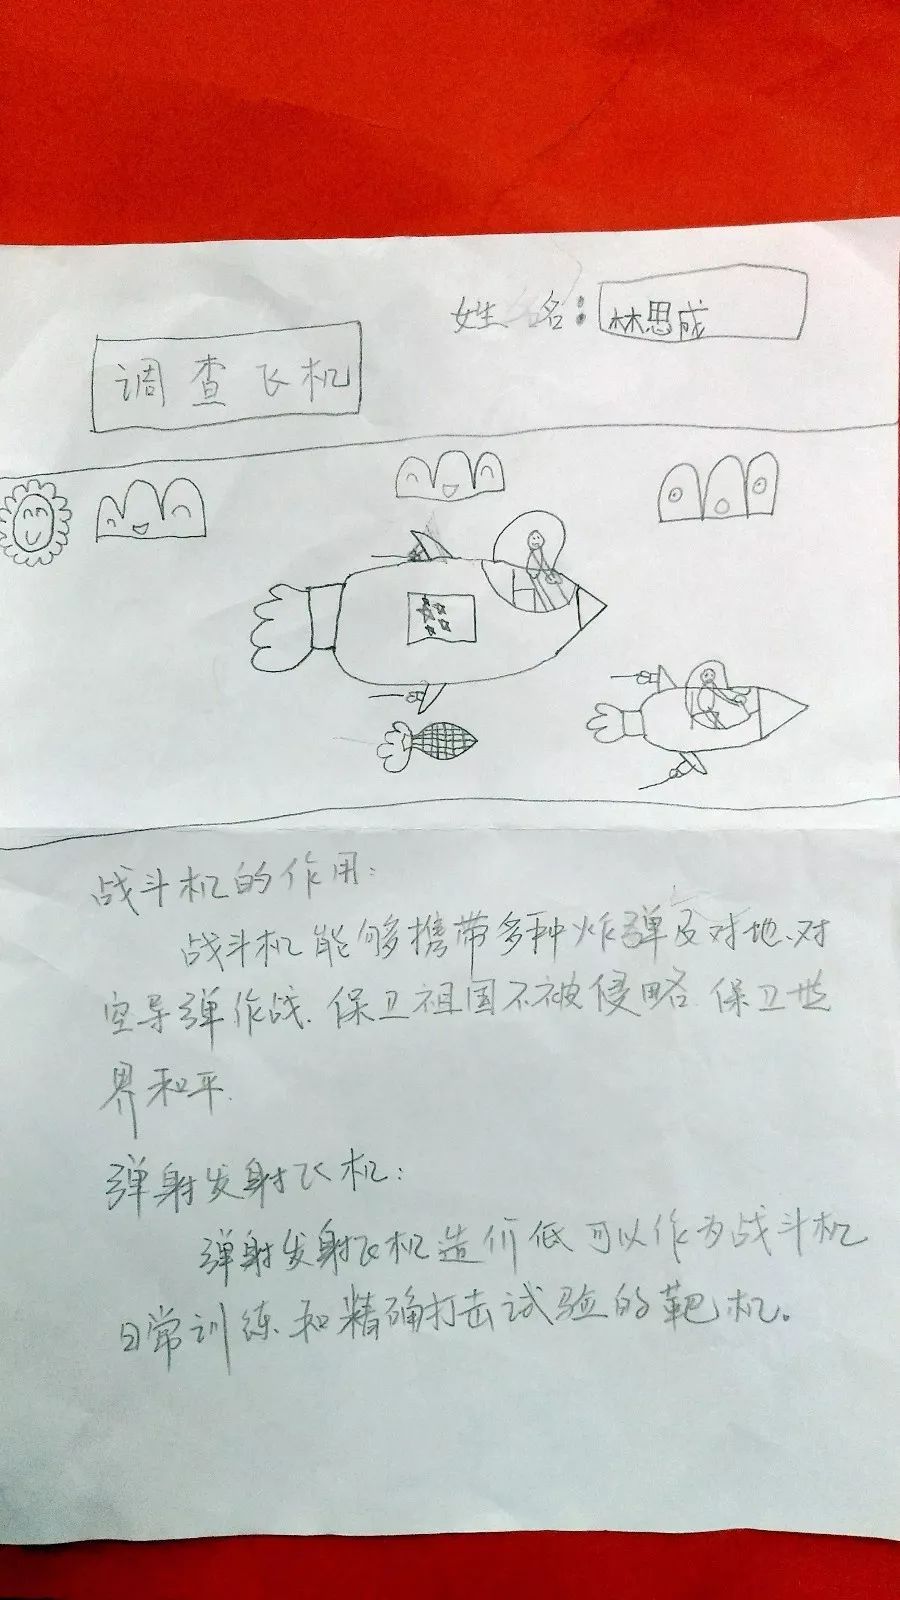 姓名：林思成
调查飞机
战斗机的作用：
战斗机能够携带多种炸弹及对地、对
空导弹作战.保卫祖国不被侵略.保卫世
界和平.
弹射发射飞机：
弹射发射飞机造价低可以作为战斗机
日常训练和精确打击试验的靶机。